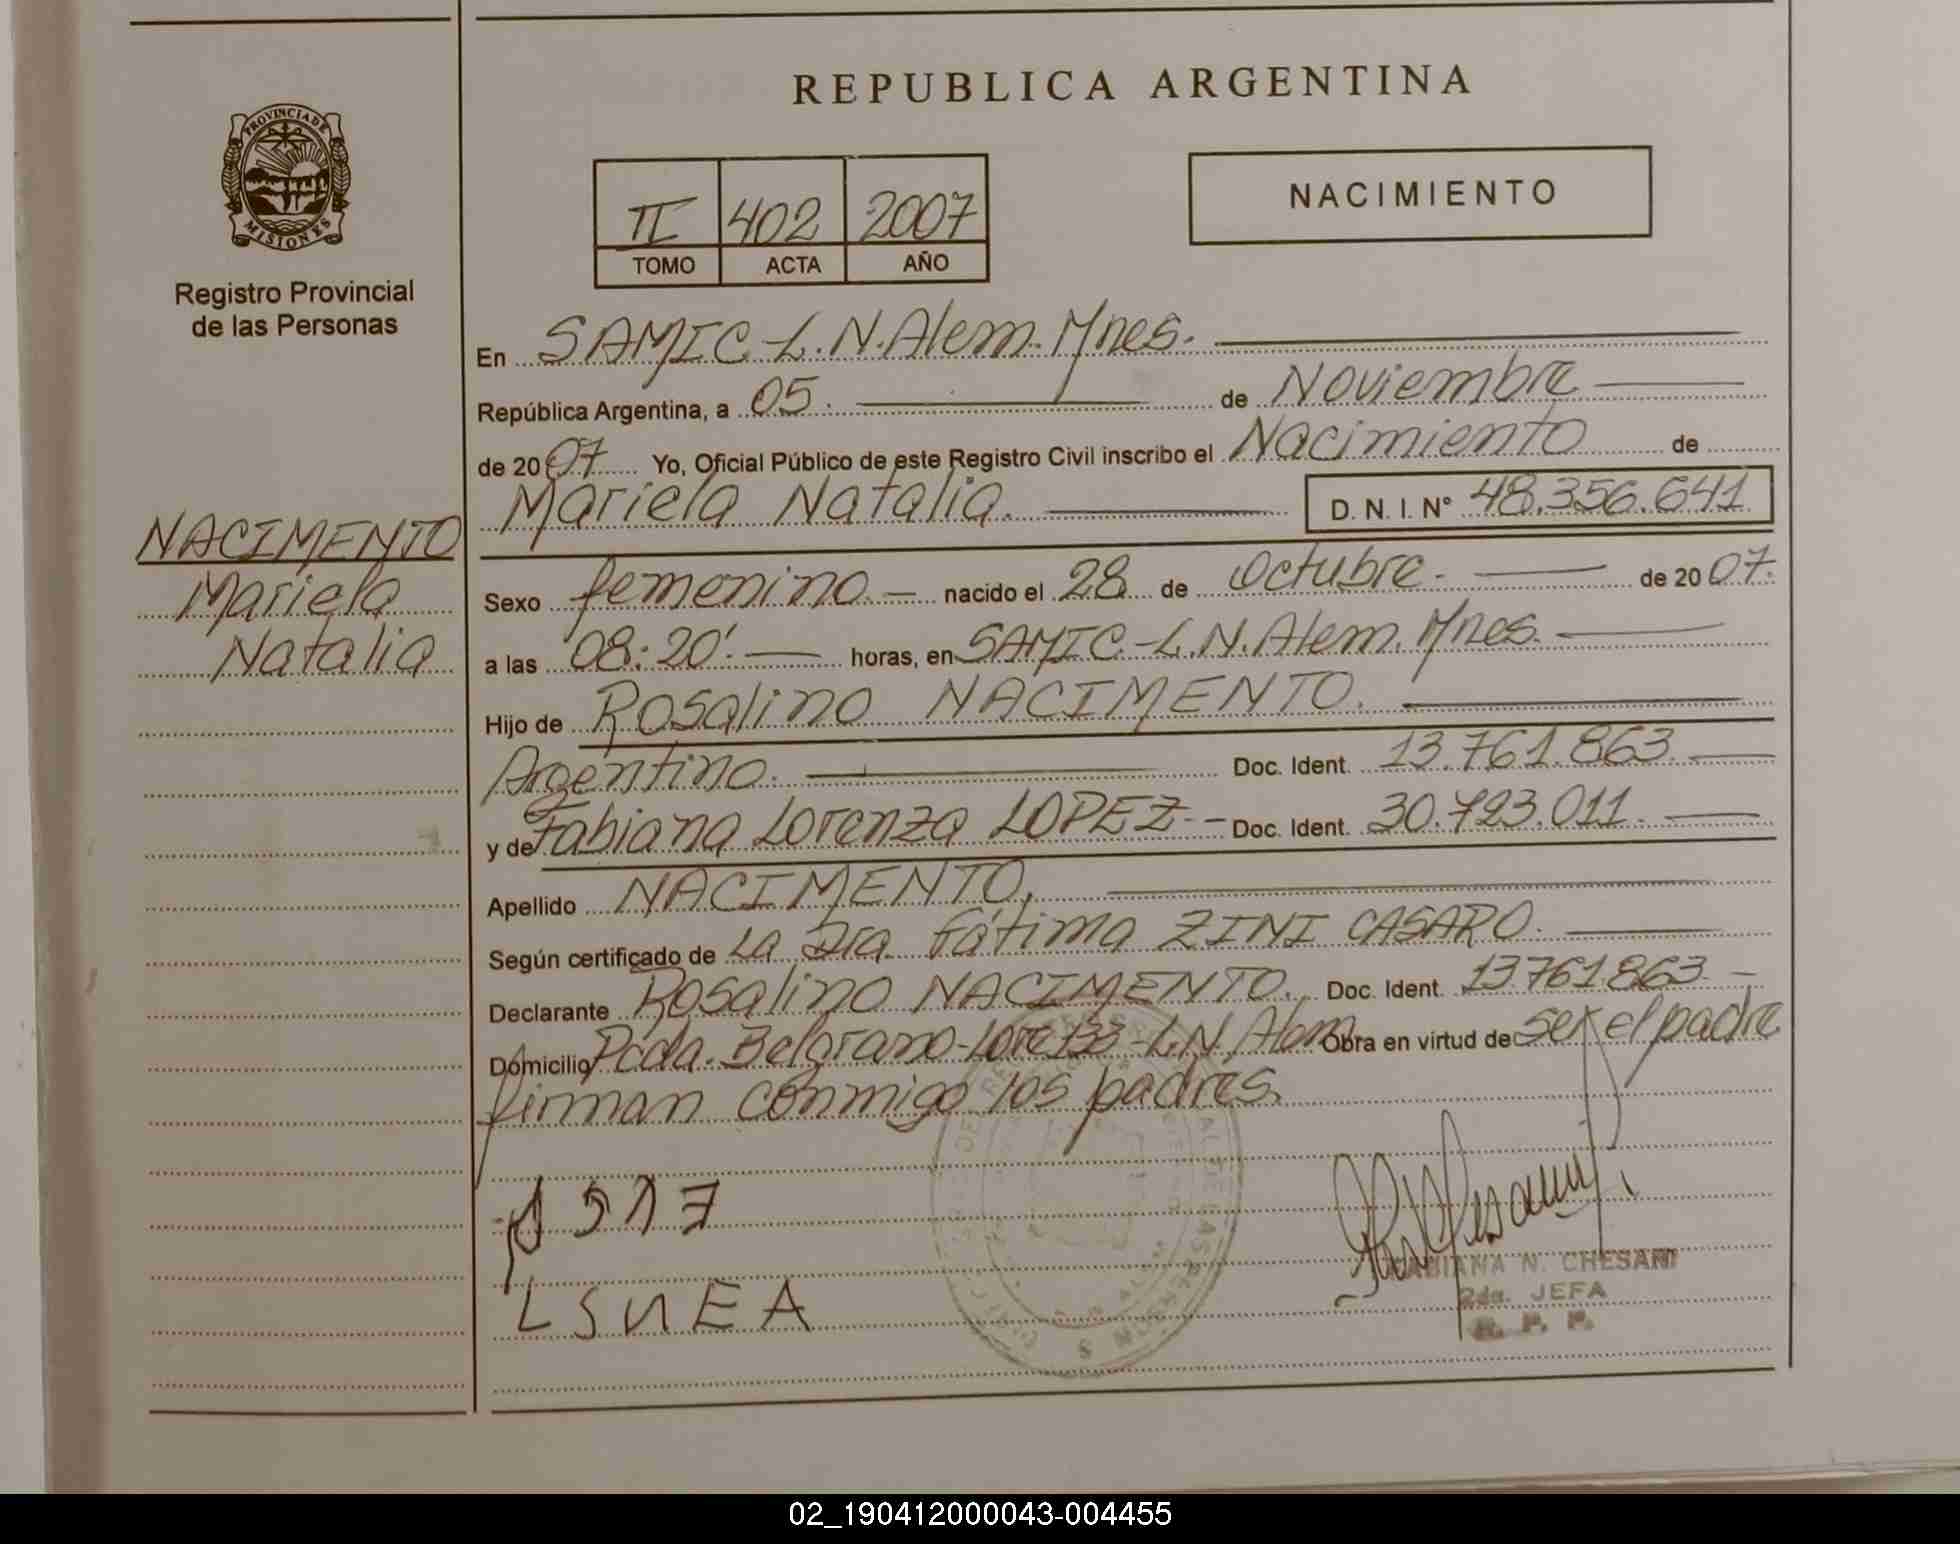 REPUBLICA ARGENTINA
PROVINCIA DE
MISIONES
Registro Provincial
de las Personas
II 402 2007
TOMO ACTA AÑO
NACIMIENTO
En SAMIC-L.N.Alem.Mnes.
República Argentina, a 05. de Noviembre
de 2007 Yo, Oficial Público de este Registro Civil inscribo el Nacimiento de
Mariela Natalia. D. N. I. N° 48.356.641
NACIMENTO
Mariela
Natalia
Sexo femenino.- nacido el 28 de Octubre. de 2007.
a las 08:20'. horas, en SAMIC.-L.N.Alem.Mnes.
Hijo de Rosalino NACIMENTO.
Argentino. Doc. Ident. 13.761.863.
y de Fabiana Lorenza LOPEZ-- Doc. Ident. 30.723.011.
Apellido NACIMENTO.
Según certificado de La Dra. Fátima ZINI CASARO.
Declarante Rosalino NACIMENTO. Doc. Ident. 13.761.863.-
Domicilio Pcda. Belgrano- -L.N.Alem Obra en virtud de ser el padre
firman conmigo los padres.
LSUEA
FABIANA N. CHESANI
2da. JEFA
R. P. P.
02_190412000043-004455